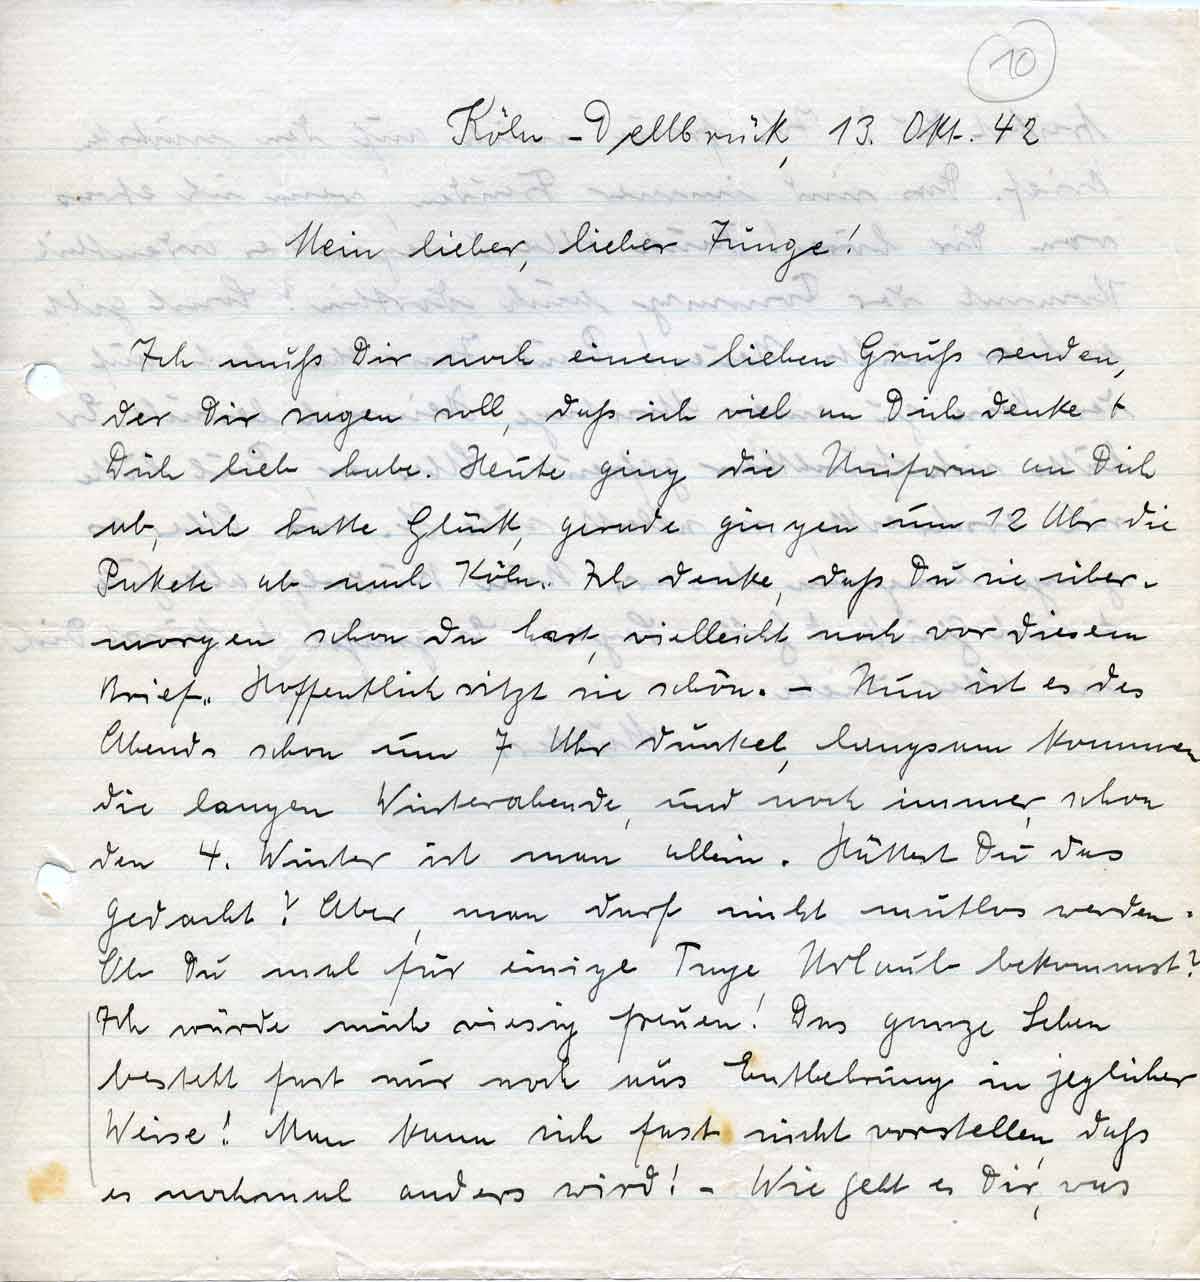 10
Köln-Dellbrück, 13. Okt. 42
Mein lieber, lieber Junge!
Ich muß Dir noch einen lieben Gruß senden,
der Dir sagen soll, daß ich viel an Dich denke +
Dich lieb habe. Heute ging die Uniform an Dich
ab, ich hatte Glück, gerade gingen um 12 Uhr die
Pakete ab nach Köln. Ich denke, daß Du sie über-
morgen schon da hast, vielleicht noch vor diesem
Brief. Hoffentlich sitzt sie schön. – Nun ist es des
Abends schon um 7 Uhr dunkel, langsam kommen
die langen Winterabende, und noch immer, schon
den 4. Winter ist man allein. Hättest Du das
gedacht? Aber, man darf nicht mutlos werden.
Ob Du mal für einige Tage Urlaub bekommst?
Ich würde mich riesig freuen! Das ganze Leben
besteht fast nur noch aus Entbehrung in jeglicher
Weise! Man kann sich fast nicht vorstellen, daß
es nochmal anders wird! – Wie geht es Dir, was